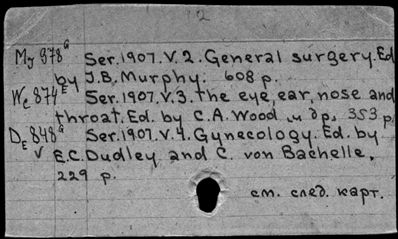 2
My 878ᴳ Ser. 1907. V. 2. General surgery. Ed.
by J.B. Murphy. 608 p.
Wc 874ᴱ Ser. 1907. V. 3. The eye, ear, nose and
throat. Ed. by C.A. Wood и др. 353 p.
DE 848ᴳ Ser. 1907. V. 4. Gynecology. Ed. by
v E.C. Dudley and C. von Bachelle.
229 p.
см. след. карт.